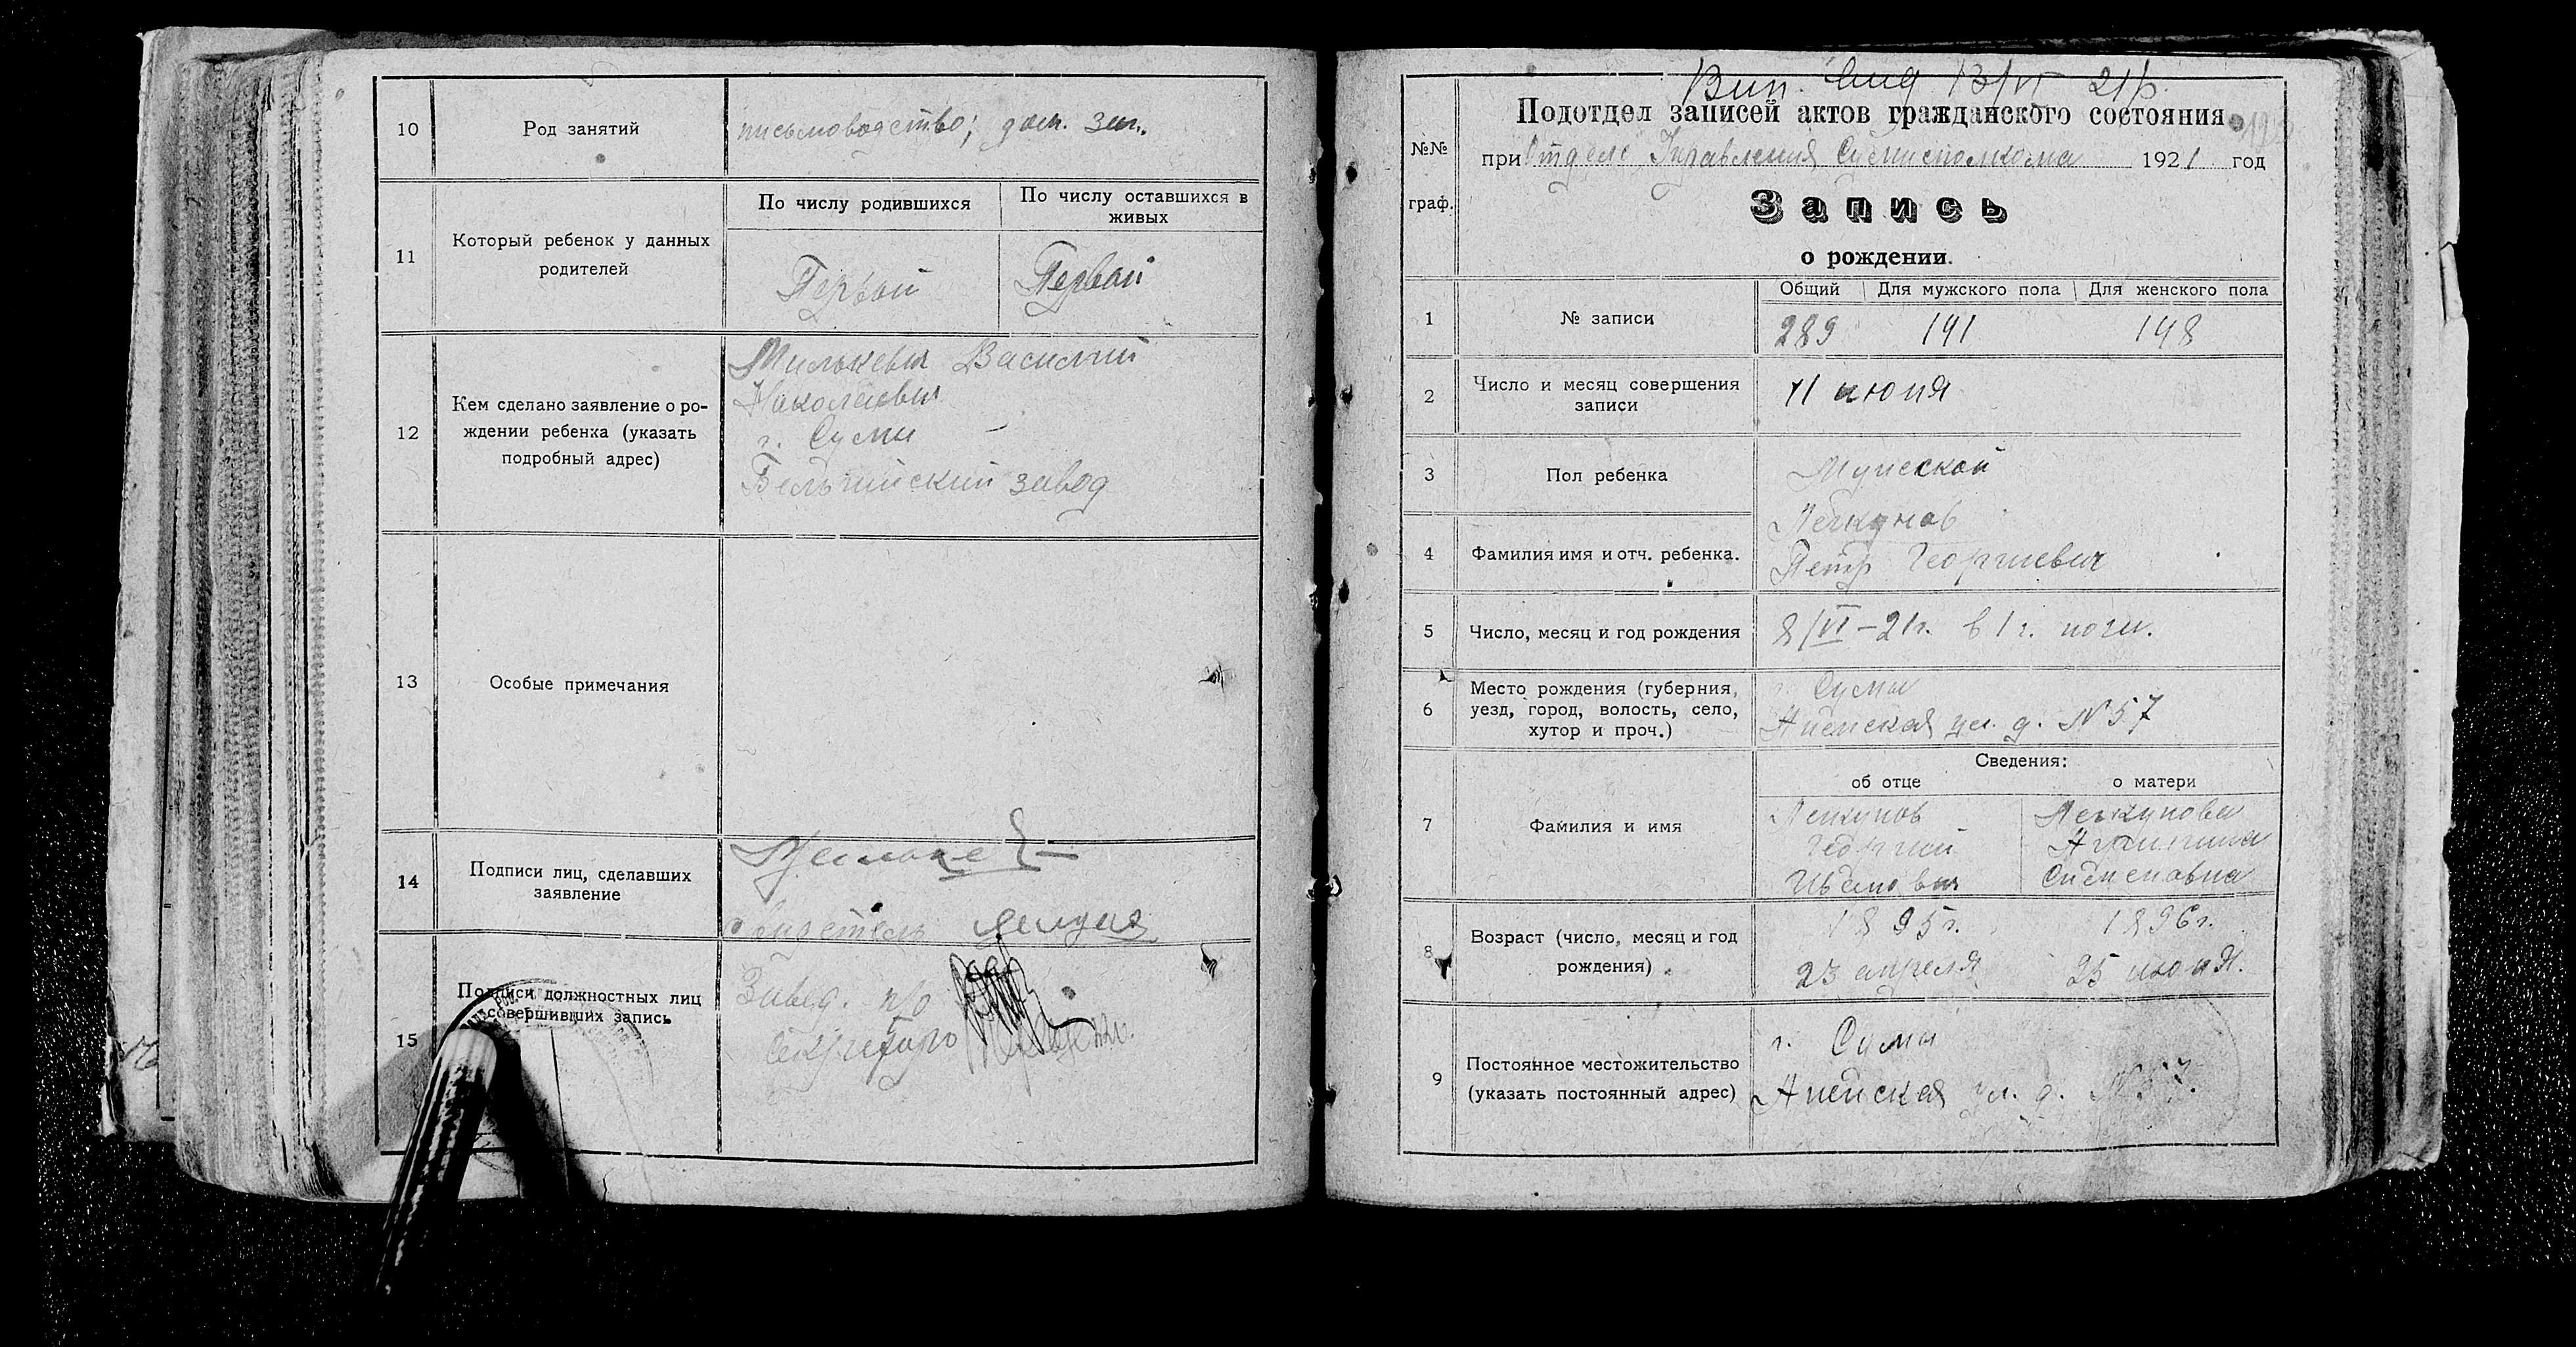 10
Род занятий
письмоводство; дом. зан.
11
Который ребенок у данных
родителей
По числу родившихся
По числу оставшихся в
живых
Первый
Первый
12
Кем сделано заявление о ро-
ждении ребенка (указать
подробный адрес)
Милькевич Василий
Николаевич
г. Сумы
Бельгийский завод
13
Особые примечания
14
Подписи лиц, сделавших
заявление
15
Подписи должностных лиц
совершивших запись
Завед. п/о
Секретарь
Вип. вид 13/VI 21р.
Подотдел записей актов гражданского состояния
№№
граф.
при Отделе Управления Сумисполкома 1921 год
Запись
о рождении.
1
№ записи
Общий Для мужского пола Для женского пола
289 141 148
2
Число и месяц совершения
записи
11 июня
3
Пол ребенка
Мужской
4
Фамилия имя и отч. ребенка.
Петр Георгиевич
5
Число, месяц и год рождения
8/VI–21г. в 1 г. ночи.
6
Место рождения (губерния,
уезд, город, волость, село,
хутор и проч.)
г. Сумы
ул. д. №57
Сведения:
об отце
о матери
7
Фамилия и имя
Георгий
8
Возраст (число, месяц и год
рождения)
1895г.
23 апреля
1896г.
25 июня.
9
Постоянное местожительство
(указать постоянный адрес)
г. Сумы
ул. д. №57.